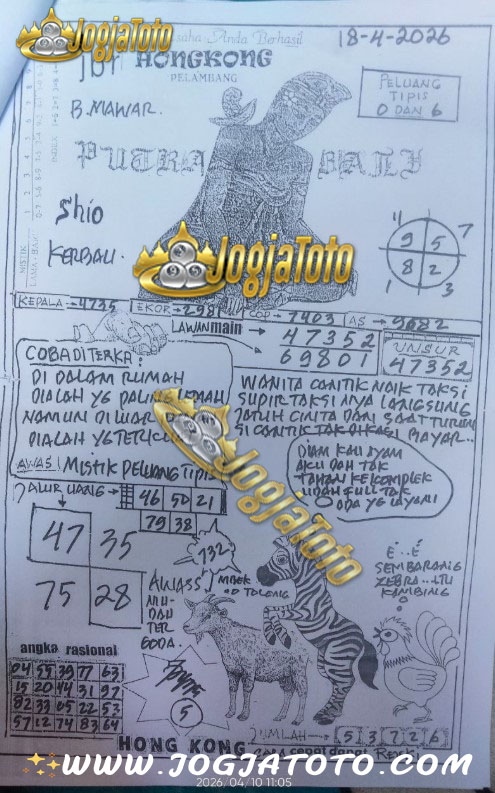 JogjaToto
Usaha Anda Berhasil
18-4-2026
HONGKONG
PELAMBANG
B. MAWAR.
PELUANG
TIPIS
0 DAN 6
PUTRA BALI
Shio
KERBAU.
4 7
9 5
8 2
1 3
JogjaToto
KEPALA → 4735
EKOR → 2981
COP → 7403
AS → 9682
LAWAN main → 47352
69801
UNSUR
47352
COBA DITERKA:
DI DALAM RUMAH
DIALAH YG PALING LEMAH
NAMUN DI LUAR
DIALAH YG
AWAS! MISTIK PELUANG TIPIS
WANITA CANTIK NAIK TAKSI
SUPIR TAKSI NYA LANGSUNG
JATUH CINTA DAN SAAT TURUN
SI CANTIK TAK DIKASI BAYAR..
DIAM KAU AYAM
AKU DAH TAK
TAHAN KE KOMPLEK
UDAH FULL TAK
ADA YG LAYANI
JogjaToto
JALUR UANG → 46 50 21
79 38
47 35
75 28
732
AWASS
MU
DAH
TER
GODA.
MBEK
TOLONG
E...E
SEMBARANG
ZEBRA...ITU
KAMBING
angka rasional
04 55 39 77 63
15 20 44 31 97
82 33 65 22 53
57 12 74 83 64
5
JUMLAH → 5 3 7 2 6
HONG KONG
WWW.JOGJATOTO.COM
2026/04/10 11:05